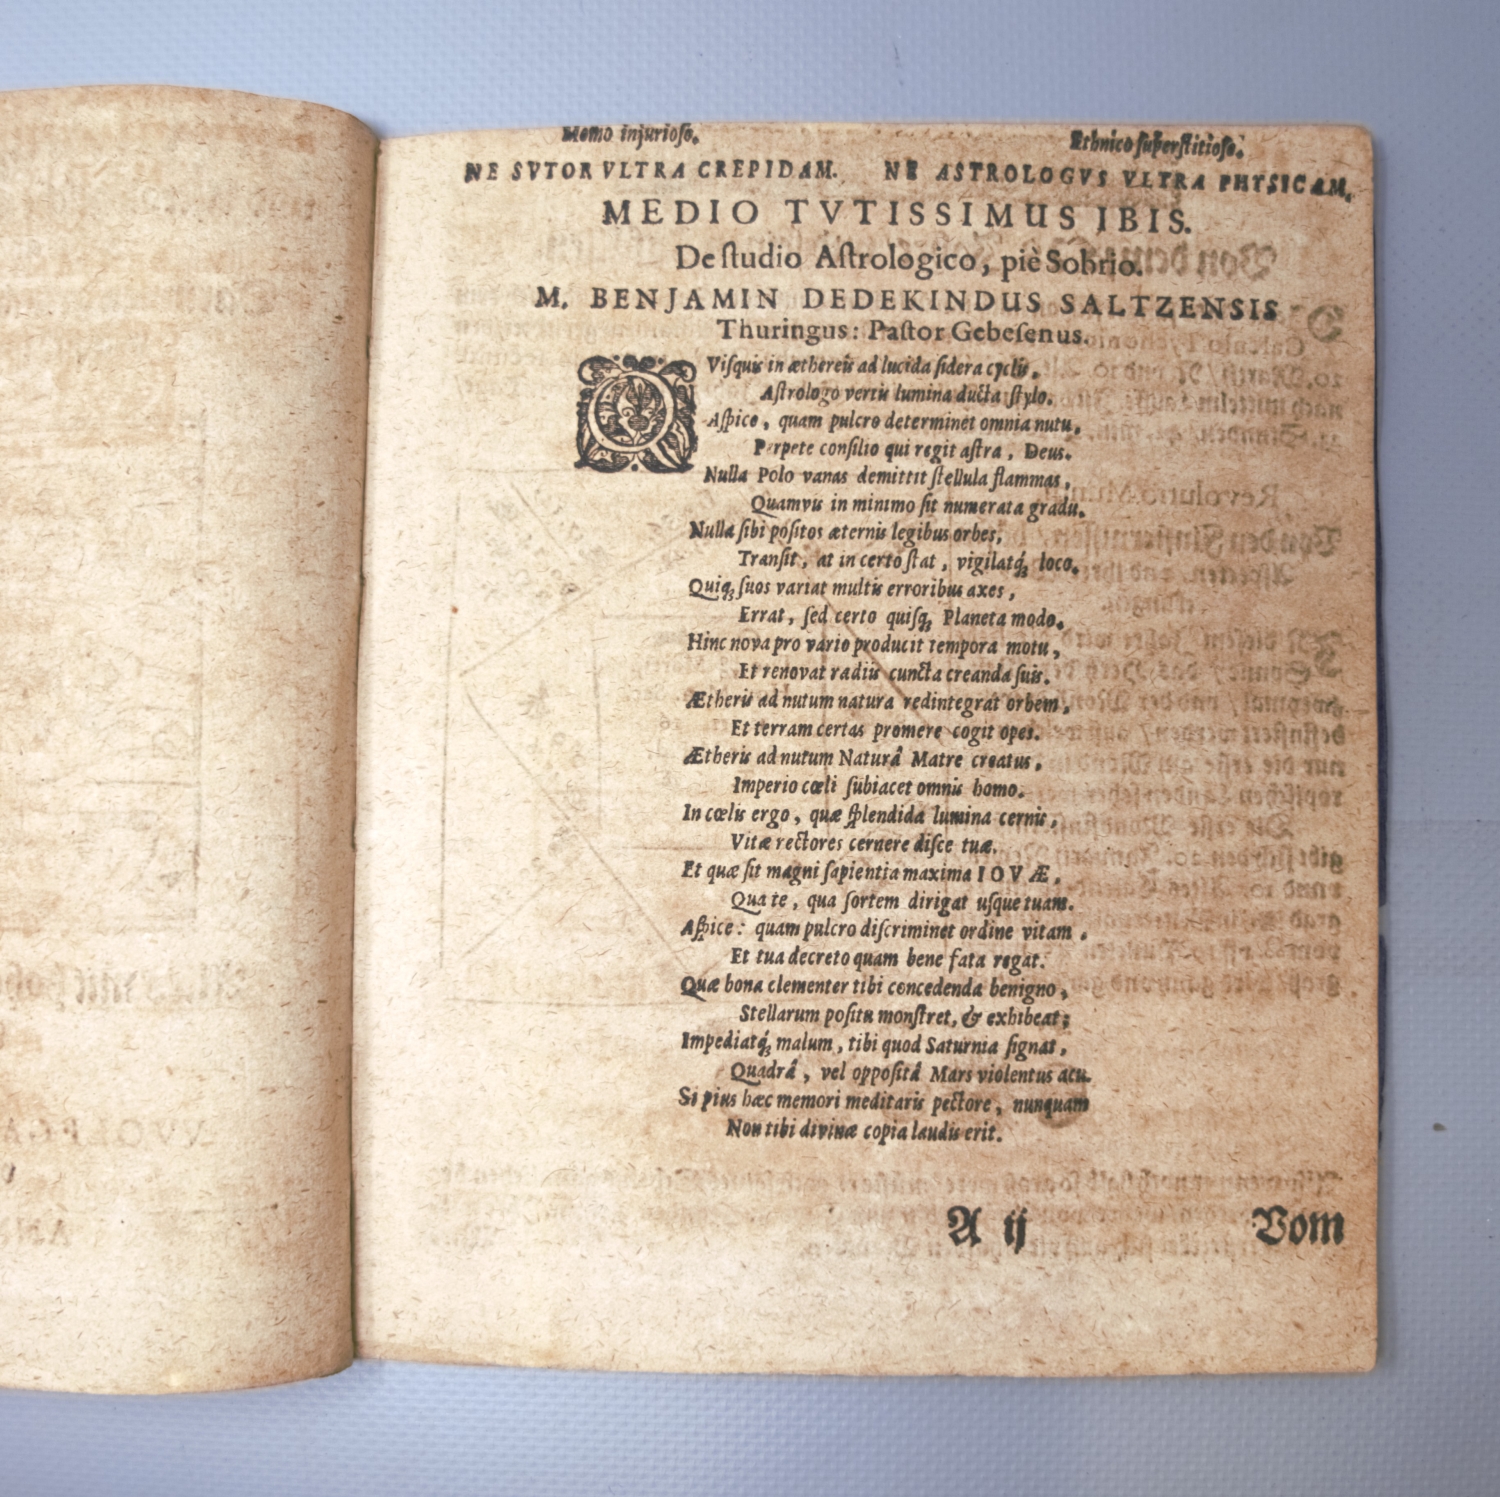 Momo injurioſo. Ethnico ſuperſtitioſo.
NE SVTOR VLTRA CREPIDAM. NE ASTROLOGVS VLTRA PHYSICAM.
MEDIO TVTISSIMUS IBIS.
De ſtudio Aſtrologico, piè Sobrio.
M. BENJAMIN DEDEKINDUS SALTZENSIS
Thuringus: Paſtor Gebeſenus.
QViſquis in æthereis ad lucida ſidera cyclis,
Aſtrologo vertis lumina ducta ſtylo.
Aſpice, quam pulcro determinet omnia nutu,
Perpete conſilio qui regit aſtra, Deus.
Nulla Polo vanas demittit ſtellula flammas,
Quamvis in minimo ſit numerata gradu.
Nulla ſibi poſitos æternis legibus orbes,
Tranſit, at in certo ſtat, vigilatq́; loco.
Quiq; ſuos variat multis erroribus axes,
Errat, ſed certo quiſq; Planeta modo.
Hinc nova pro vario producit tempora motu,
Et renovat radiis cuncta creanda ſuis.
Ætheris ad nutum natura redintegrat orbem,
Et terram certas promere cogit opes.
Ætheris ad nutum Naturâ Matre creatus,
Imperio cœli ſubiacet omnis homo.
In cœlis ergo, quæ ſplendida lumina cernis,
Vitæ rectores cernere diſce tuæ.
Et quæ ſit magni ſapientia maxima IOVÆ,
Qua te, qua ſortem dirigat uſque tuam.
Aſpice: quam pulcro diſcriminet ordine vitam,
Et tua decreto quam bene fata regat.
Quæ bona clementer tibi concedenda benigno,
Stellarum poſitu monſtret, & exhibeat;
Impediatq́; malum, tibi quod Saturnia ſignat,
Quadrâ, vel oppoſitâ Mars violentus acu.
Si pius hæc memori meditaris pectore, nunquam
Non tibi divinæ copia laudis erit.
A ij Vom